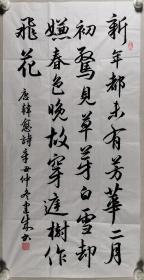 新年都未有芳華二月
初驚見草芽白雪却
嫌春色晚故穿庭樹作
飛花
唐韓愈詩辛丑仲冬